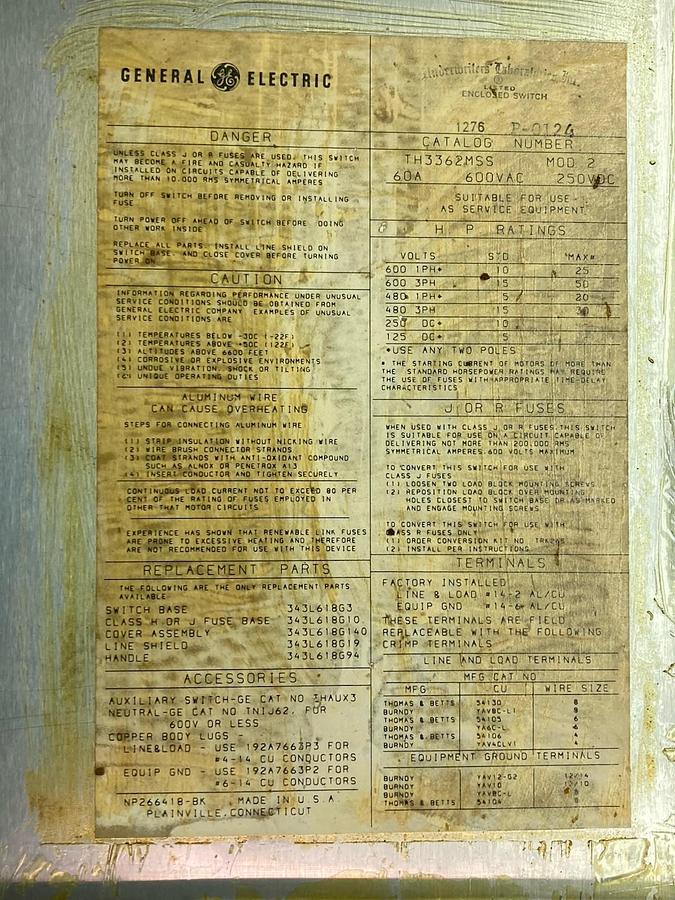 GENERAL GE ELECTRIC
DANGER
UNLESS CLASS J OR R FUSES ARE USED, THIS SWITCH
MAY BECOME A FIRE AND CASUALTY HAZARD IF
INSTALLED ON CIRCUITS CAPABLE OF DELIVERING
MORE THAN 10.000 RMS SYMMETRICAL AMPERES
TURN OFF SWITCH BEFORE REMOVING OR INSTALLING
FUSE
TURN POWER OFF AHEAD OF SWITCH BEFORE DOING
OTHER WORK INSIDE
REPLACE ALL PARTS, INSTALL LINE SHIELD ON
SWITCH BASE, AND CLOSE COVER BEFORE TURNING
POWER ON
CAUTION
INFORMATION REGARDING PERFORMANCE UNDER UNUSUAL
SERVICE CONDITIONS SHOULD BE OBTAINED FROM
GENERAL ELECTRIC COMPANY EXAMPLES OF UNUSUAL
SERVICE CONDITIONS ARE
(1) TEMPERATURES BELOW -30C (-22F)
(2) TEMPERATURES ABOVE +50C (122F)
(3) ALTITUDES ABOVE 6600 FEET
(4) CORROSIVE OR EXPLOSIVE ENVIRONMENTS
(5) UNDUE VIBRATION, SHOCK OR TILTING
(6) UNIQUE OPERATING DUTIES
ALUMINUM WIRE
CAN CAUSE OVERHEATING
STEPS FOR CONNECTING ALUMINUM WIRE
(1) STRIP INSULATION WITHOUT NICKING WIRE
(2) WIRE BRUSH CONNECTOR STRANDS
(3) COAT STRANDS WITH ANTI-OXIDANT COMPOUND
SUCH AS ALNOX OR PENETROX A13
(4) INSERT CONDUCTOR AND TIGHTEN SECURELY
CONTINUOUS LOAD CURRENT NOT TO EXCEED 80 PER
CENT OF THE RATING OF FUSES EMPLOYED IN
OTHER THAT MOTOR CIRCUITS
EXPERIENCE HAS SHOWN THAT RENEWABLE LINK FUSES
ARE PRONE TO EXCESSIVE HEATING AND THEREFORE
ARE NOT RECOMMENDED FOR USE WITH THIS DEVICE
REPLACEMENT PARTS
THE FOLLOWING ARE THE ONLY REPLACEMENT PARTS
AVAILABLE
SWITCH BASE 343L618G3
CLASS H OR J FUSE BASE 343L618G10
COVER ASSEMBLY 343L618G140
LINE SHIELD 343L618G19
HANDLE 343L618G94
ACCESSORIES
AUXILIARY SWITCH-GE CAT NO THAUX3
NEUTRAL-GE CAT NO TNIJ62, FOR
600V OR LESS
COPPER BODY LUGS -
LINE&LOAD - USE 192A7663P3 FOR
#4-14 CU CONDUCTORS
EQUIP GND - USE 192A7663P2 FOR
#6-14 CU CONDUCTORS
NP266418-BK MADE IN U.S.A.
PLAINVILLE, CONNECTICUT
Underwriters Laboratories Inc.
LISTED
ENCLOSED SWITCH
1276 P-0124
CATALOG NUMBER
TH3362MSS MOD 2
60A 600VAC 250VDC
SUITABLE FOR USE
AS SERVICE EQUIPMENT
H P RATINGS
VOLTS STD MAX*
600 1PH+ 10 25
600 3PH 15 50
480 1PH+ 5 20
480 3PH 15 30
250 DC+ 10
125 DC+ 5
+USE ANY TWO POLES
* THE STARTING CURRENT OF MOTORS OF MORE THAN
THE STANDARD HORSEPOWER RATINGS MAY REQUIRE
THE USE OF FUSES WITH APPROPRIATE TIME-DELAY
CHARACTERISTICS
J OR R FUSES
WHEN USED WITH CLASS J OR FUSES, THIS SWITCH
IS SUITABLE FOR USE ON A CIRCUIT CAPABLE OF
DELIVERING NOT MORE THAN 200.000 RMS
SYMMETRICAL AMPERES, 600 VOLTS MAXIMUM
TO CONVERT THIS SWITCH FOR USE WITH
CLASS J FUSES
(1) LOOSEN TWO LOAD BLOCK MOUNTING SCREWS
(2) REPOSITION LOAD BLOCK OVER MOUNTING
HOLES CLOSEST TO SWITCH BASE OR AS MARKED
AND ENGAGE MOUNTING SCREWS
TO CONVERT THIS SWITCH FOR USE WITH
CLASS R FUSES ONLY
(1) ORDER CONVERSION KIT NO
(2) INSTALL PER INSTRUCTIONS
TERMINALS
FACTORY INSTALLED
LINE & LOAD #14-2 AL/CU
EQUIP GND #14-6 AL/CU
THESE TERMINALS ARE FIELD
REPLACEABLE WITH THE FOLLOWING
CRIMP TERMINALS
LINE AND LOAD TERMINALS
MFG CAT NO
MFG CU WIRE SIZE
THOMAS & BETTS 54130 8
BURNDY YAV8C-L1 8
THOMAS & BETTS 54105 6
BURNDY YA6C-L 6
THOMAS & BETTS 54106 4
BURNDY YAV4CLV1 4
EQUIPMENT GROUND TERMINALS
BURNDY YAV12-G2 12/14
BURNDY YAV10 12/10
BURNDY YAV8C-L 8
THOMAS & BETTS 54104 8